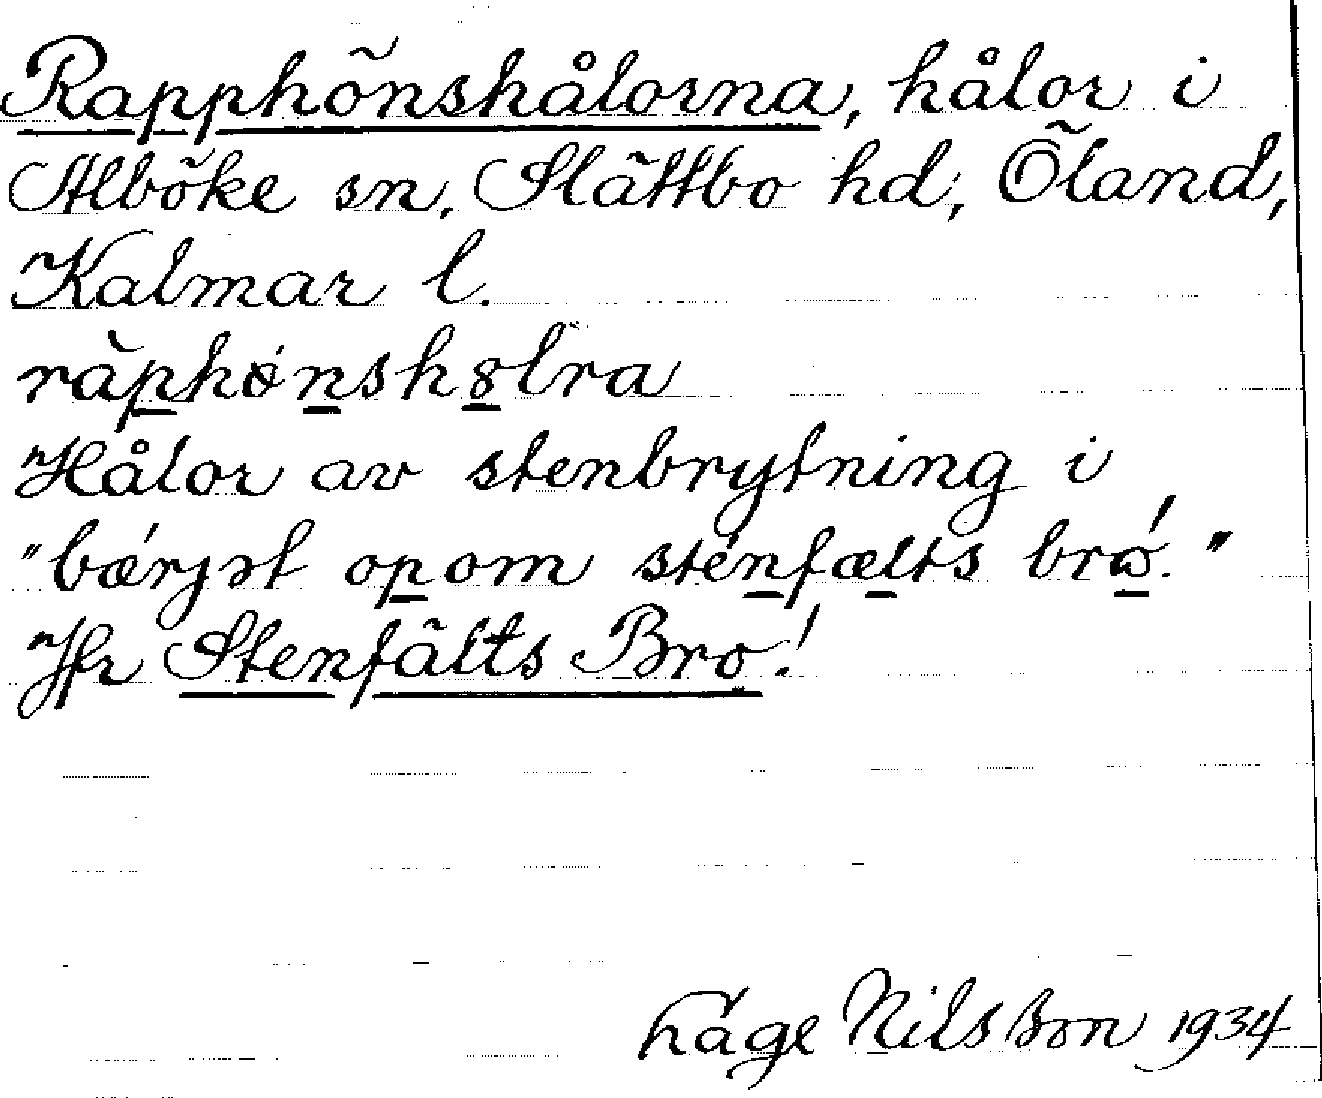 Rapphönshålorna, hålor i
Alböke sn, Slättbo hd, Öland,
Kalmar l.
ràphǿnsh8lra
Hålor av stenbrytning i
"bǽrjst opom sténfælts brώ!"
Jfr Stenfälts Bro!
Låge Nilsson 1934